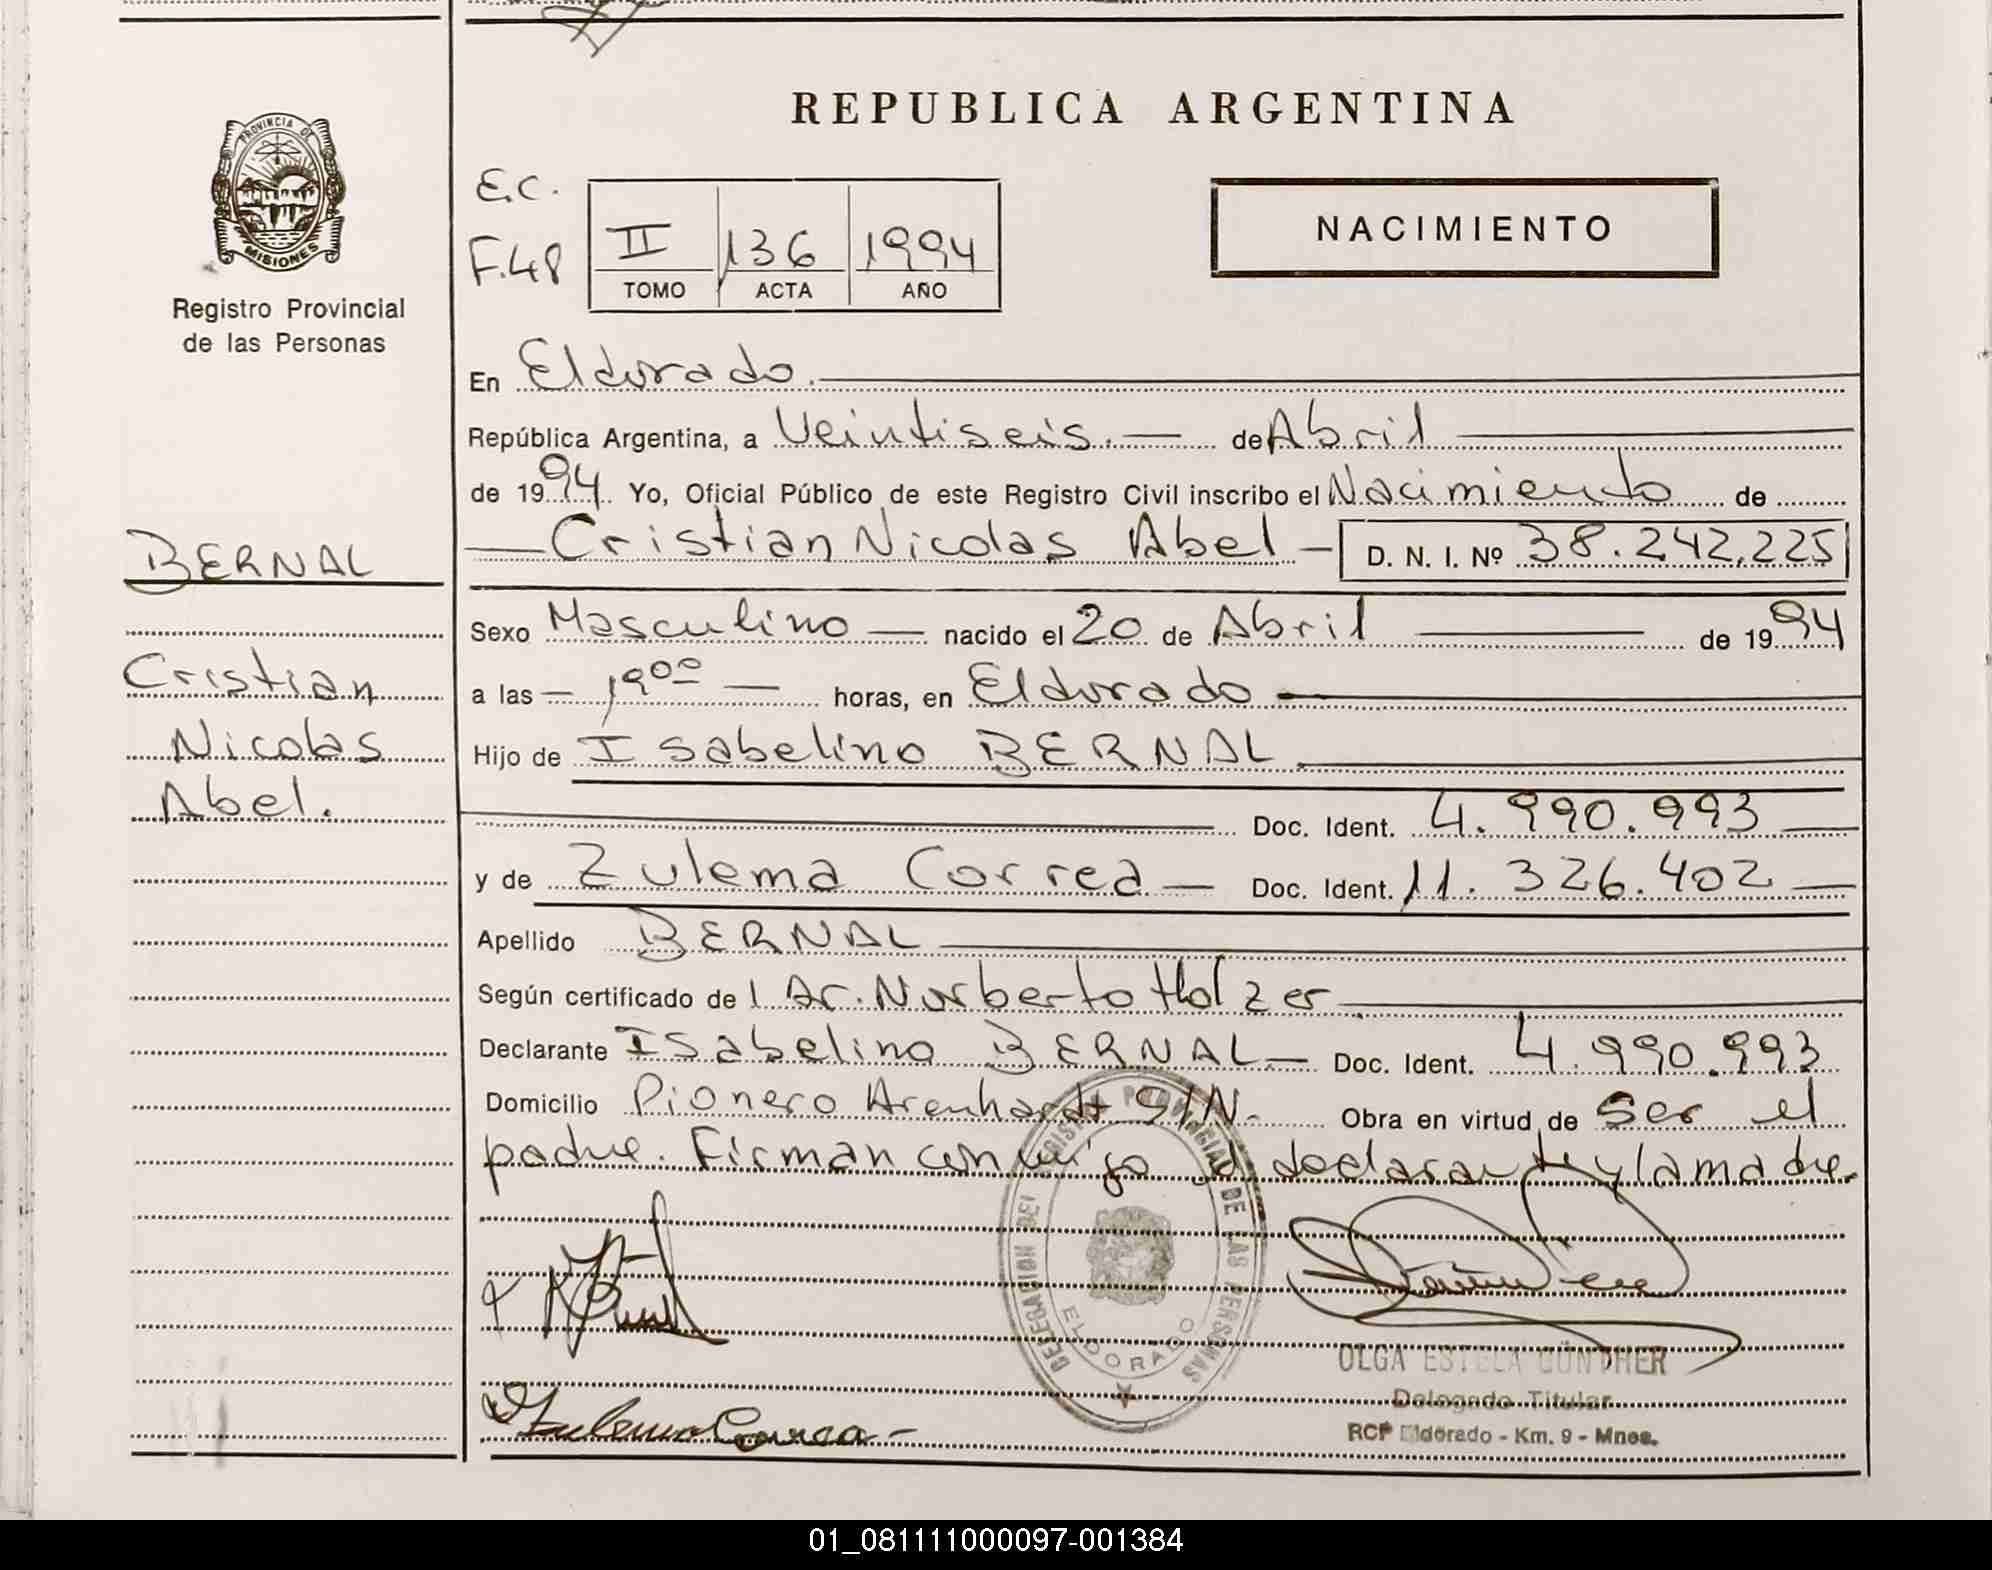 REPUBLICA ARGENTINA
PROVINCIA DE
MISIONES
Registro Provincial
de las Personas
E.C.
F.48
II 136 1994
TOMO ACTA AÑO
NACIMIENTO
En Eldorado.
República Argentina, a Veintiseis. de Abril
de 1994. Yo, Oficial Público de este Registro Civil inscribo el Nacimiento de
Cristian Nicolas Abel D. N. I. Nº 38.242.225
BERNAL
Cristian
Nicolas
Abel.
Sexo Masculino nacido el 20 de Abril de 1994
a las 1900 horas, en Eldorado
Hijo de Isabelino BERNAL.
Doc. Ident. 4.990.993
y de Zulema Correa Doc. Ident. 11.326.402
Apellido BERNAL
Según certificado de Dr. Norberto Holzer
Declarante Isabelino BERNAL Doc. Ident. 4.990.993
Domicilio Pionero Arenhardt S/N. Obra en virtud de Ser el
padre. Firman conmigo el declarante y la madre.
DELEGACION DEL REGISTRO PROVINCIAL DE LAS PERSONAS
ELDORADO
OLGA ESTELA GÜNTHER
Delegado Titular
RCP Eldorado - Km. 9 - Mnes.
Zulema Correa
01_081111000097-001384